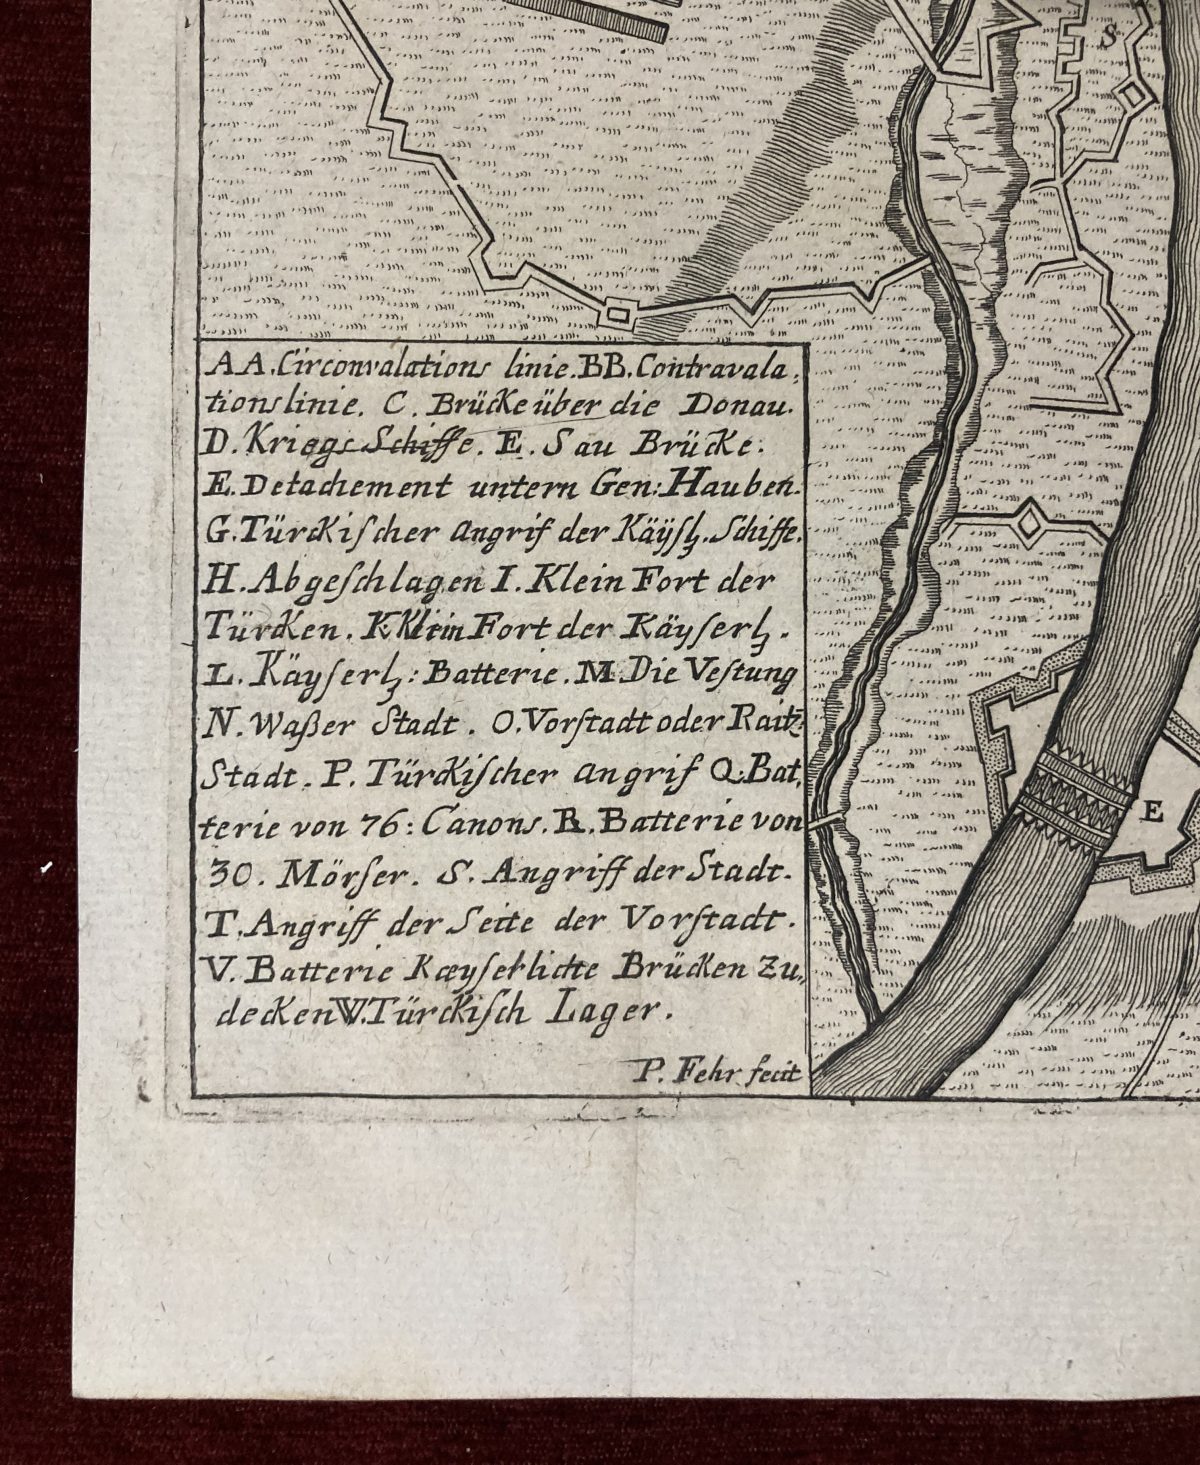 S
AA.Circonvalations linie.BB.Contravala,
tionslinie. C. Brücke über die Donau.
D. Kriegs Schiffe. E. Sau Brücke.
E. Detachement untern Gen: Hauben.
G. Türckiſcher angrif der Käÿſl. Schiffe.
H. Abgeſchlagen I. Klein Fort der
Türcken. K. Klein Fort der Käyſerl.
L. Käyſerl: Batterie. M. Die Veſtung
N. Waßer Stadt. O. Vorſtadt oder Raitz-
Stadt. P. Türckiſcher angrif Q. Bat,
terie von 76: Canons. R. Batterie von
30. Mörſer. S. Angriff der Stadt.
T. Angriff der Seite der Vorſtadt.
V. Batterie Kæyſerlichte Brücken zu,
decken W. Türckiſch Lager.
P. Fehr fecit
E